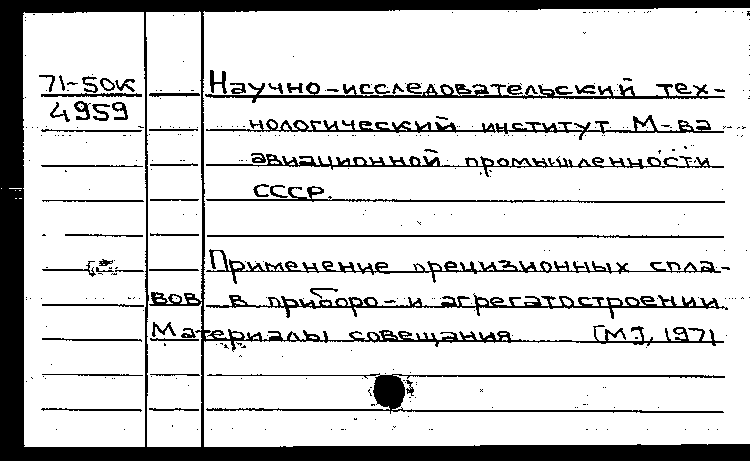 71-50К Научно-исследовательский тех-
4959
нологический институт М-ва
авиационной промышленности
СССР.
Применение прецизионных спла-
вов в приборо- и агрегатостроении.
Материалы совещания [М.], 1971